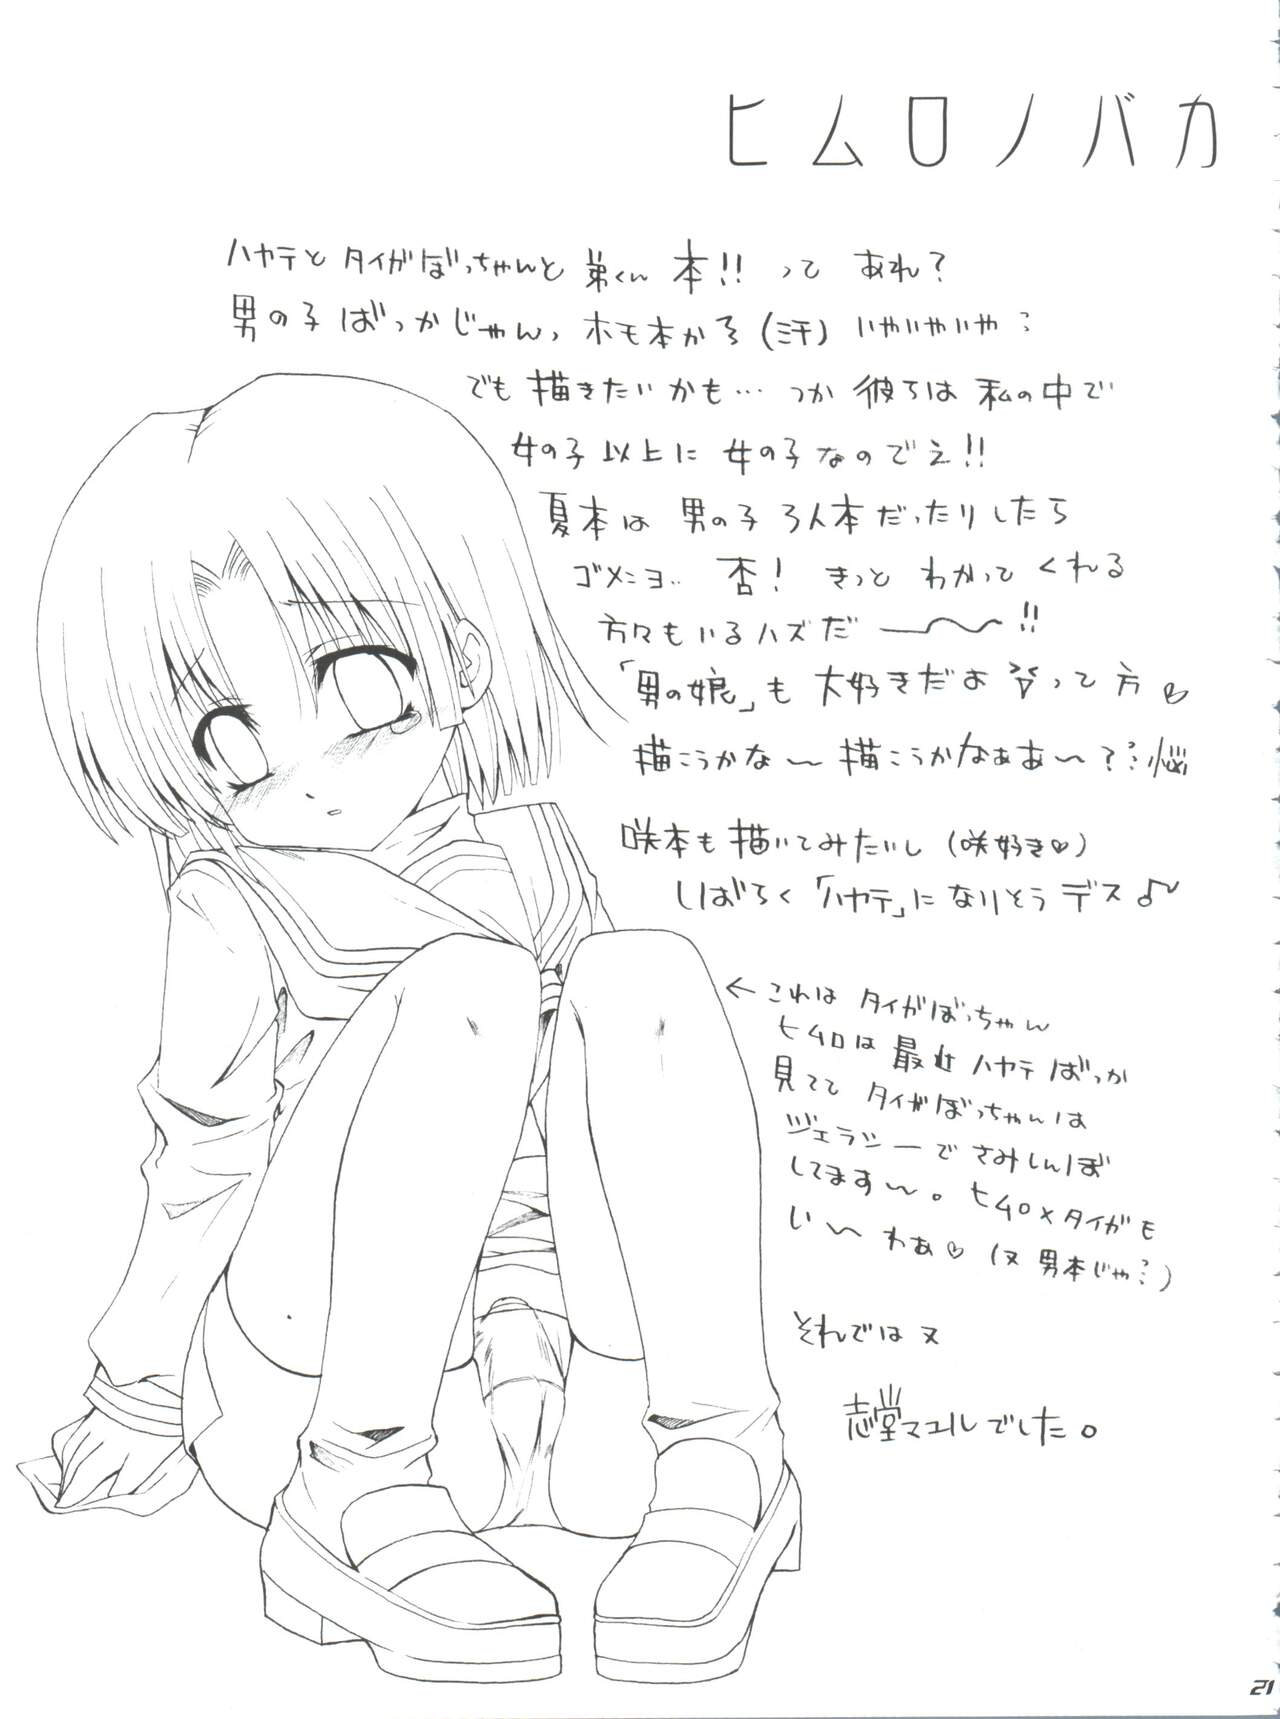 ヒムロノバカ
ハヤテと タイガぼっちゃんと 弟くん 本!! って あれ?
男の子 ばっかじゃんっ ホモ本かろ (汗) いやいやいや…
でも 描きたいかも… つか 彼らは 私の中で
女の子 以上に 女の子なのでえ!!
夏本は 男の子 3人本だったりしたら
ゴメンヨ… 否! きっと わかって くれる
方々もいるハズだ ―〜〜 !!
「男の娘」も 大好きだよ って 方♡
描こうかな〜 描こうかなぁあ〜?? 悩
咲本も描いてみたいし (咲好き♡)
しばらく「ハヤテ」に なりそう デス♪
← これは タイガぼっちゃん
ヒムロは 最近 ハヤテ ばっか
見てて タイガぼっちゃんは
ジェラシーで さみしんぼ
してます〜。 ヒムロ×タイガも
い〜 わぁ♡ (又 男本じゃ…)
それでは 又
志堂マユルでした。
21